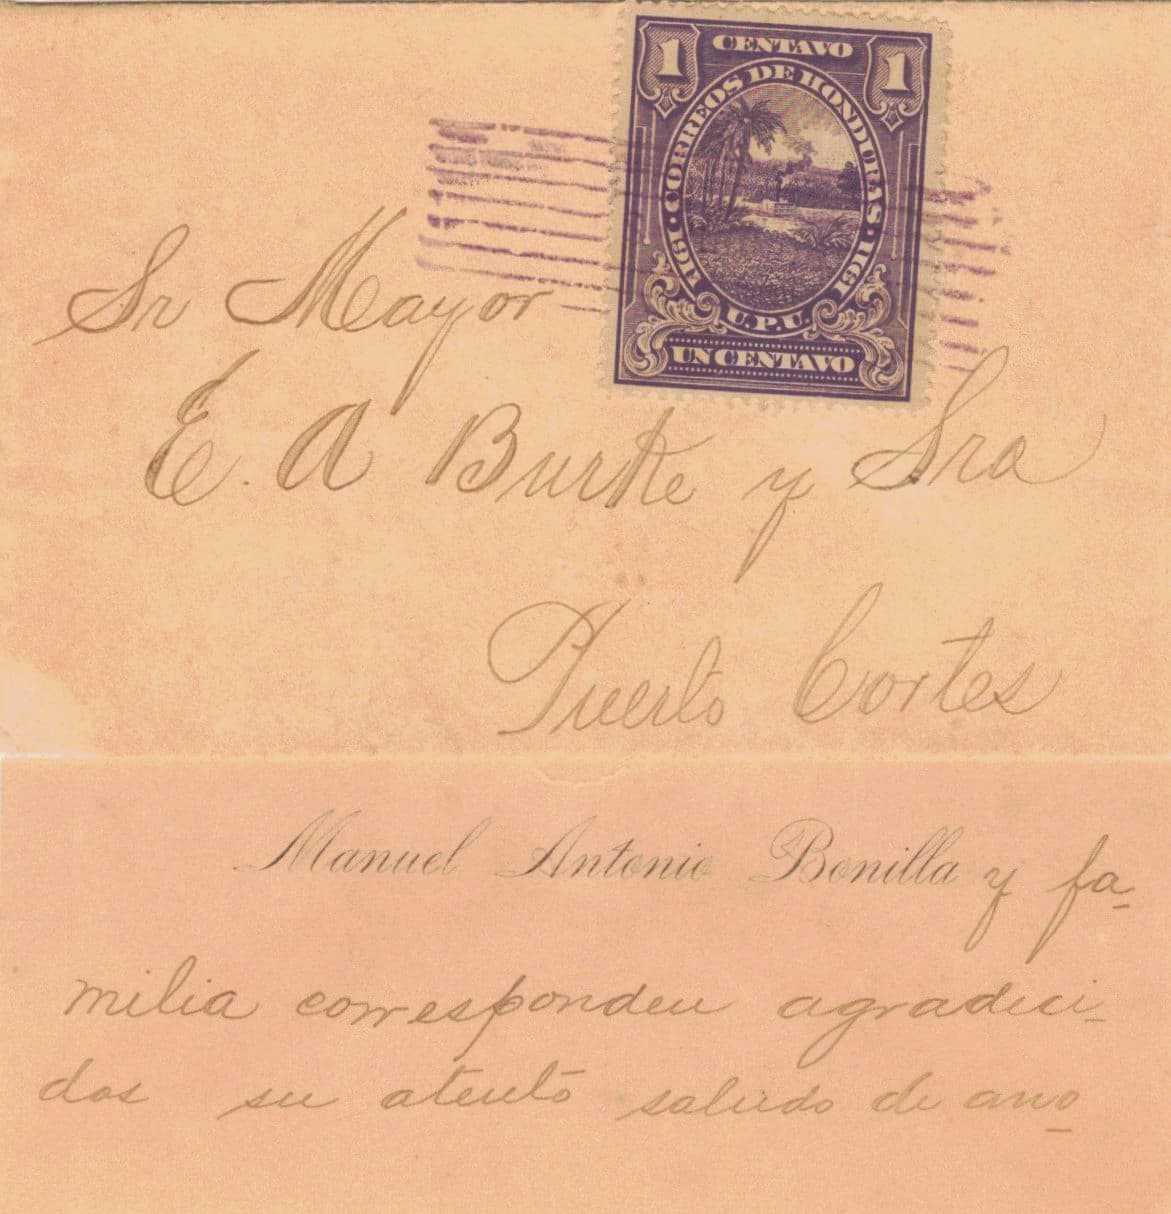 1 CENTAVO 1
CORREOS DE HONDURAS
1911 1911
U.P.U.
UN CENTAVO
Sr Mayor
E. A Burke y Sra
Puerto Cortes
Manuel Antonio Bonilla y fa-
milia corresponden agradeci-
dos su atento saludo de ano